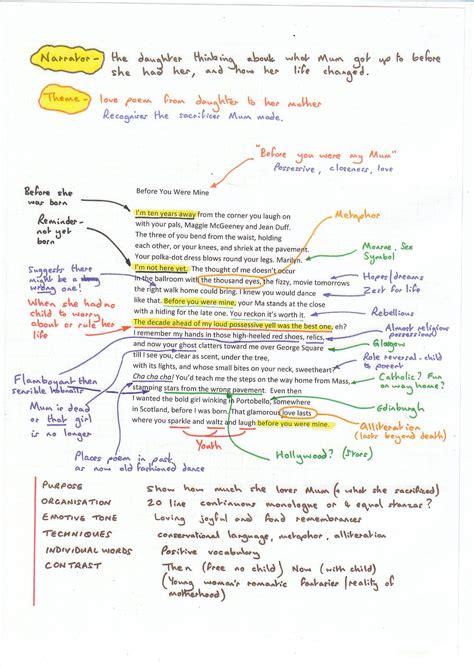 Narrator - the daughter thinking about what Mum got up to before
she had her, and how her life changed.
Theme - love poem from daughter to her mother
Recognises the sacrifices Mum made.
"Before you were my Mum"
Possessive, closeness, love
Before she
was born
Before You Were Mine
Metaphor
Reminder-
not yet
born
I'm ten years away from the corner you laugh on
with your pals, Maggie McGeeney and Jean Duff.
The three of you bend from the waist, holding
each other, or your knees, and shriek at the pavement.
Your polka-dot dress blows round your legs. Marilyn.
Monroe. Sex
Symbol
I'm not here yet. The thought of me doesn't occur
in the ballroom with the thousand eyes, the fizzy, movie tomorrows
the right walk home could bring. I knew you would dance
like that. Before you were mine, your Ma stands at the close
with a hiding for the late one. You reckon it's worth it.
Suggests there
might be a
wrong one!
Hopes/dreams
Zest for life
Rebellious
When she had no
child to worry
about or rule her
life
The decade ahead of my loud possessive yell was the best one, eh?
I remember my hands in those high-heeled red shoes, relics,
and now your ghost clatters toward me over George Square
till I see you, clear as scent, under the tree,
with its lights, and whose small bites on your neck, sweetheart?
Almost religious
possessions!
Glasgow
Role reversal - child
to parent
Flamboyant then
sensible hobnails
Cha cha cha! You'd teach me the steps on the way home from Mass,
stamping stars from the wrong pavement. Even then
I wanted the bold girl winking in Portobello, somewhere
in Scotland, before I was born. That glamorous love lasts
where you sparkle and waltz and laugh before you were mine.
Catholic? Fun
on way home?
Edinburgh
Mum is dead
or that girl
is no longer
Alliteration
(lasts beyond death)
Youth
Hollywood? (Stars)
Places poem in past
as now old fashioned dance
PURPOSE Show how much she loves Mum (& what she sacrificed)
ORGANISATION 20 line continuous monologue or 4 equal stanzas?
EMOTIVE TONE Loving joyful and fond remembrances
TECHNIQUES conversational language, metaphor, alliteration
INDIVIDUAL WORDS Positive vocabulary
CONTRAST Then (free no child) Now (with child)
(Young woman's romantic fantasies/reality of
motherhood)